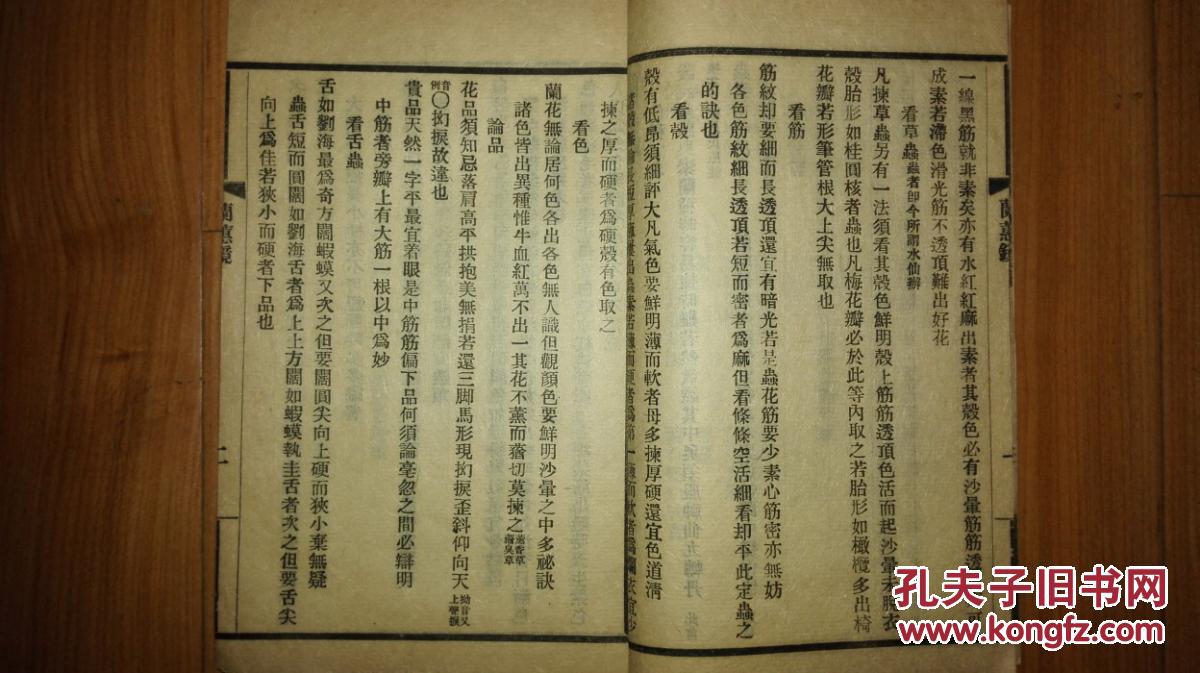 一線黑筋就非素矣亦有水紅紅麻出素者其殼色必有沙暈筋筋透
成素若滯色滑光筋不透頂難出好花
看草蟲蟲者卽今所謂水仙瓣
凡揀草蟲另有一法須看其殼色鮮明殼上筋筋透頂色活而起沙暈未脫衣
殼胎形如桂圓核者蟲也凡梅花瓣必於此等內取之若胎形如橄欖多出椅
花瓣若形筆管根大上尖無取也
看筋
筋紋却要細而長透頂還宜有暗光若是蟲花筋要少素心筋密亦無妨
各色筋紋細長透頂若短而密者爲麻但看條條空活細看却平此定蟲之
的訣也
看殼
殼有低昂須細評大凡氣色要鮮明薄而軟者母多揀厚硬還宜色道淸
薄而硬者爲第一
揀之厚而硬者爲硬殼有色取之
看色
蘭花無論居何色各出各色無人識但觀顏色要鮮明沙暈之中多祕訣
諸色皆出異種惟牛血紅萬不出一其花不薰而蕕切莫揀之薰香草蕕臭草
論品
花品須知忌落肩高平拱抱美無捐若還三脚馬形現抝捩歪斜仰向天抝音又上聲捩
音例〇抝捩故違也
貴品天然一字平最宜着眼是中筋筋偏下品何須論毫忽之間必辯明
中筋者旁瓣上有大筋一根以中爲妙
看舌蟲
舌如劉海最爲奇方闊蝦蟆又次之但要闊圓尖向上硬而狹小棄無疑
蟲舌短而圓闊如劉海舌者爲上上方闊如蝦蟆執圭舌者次之但要舌尖
向上爲佳若狹小而硬者下品也
蘭蕙鏡
二
蘭蕙鏡
孔夫子旧书网
www.kongfz.com